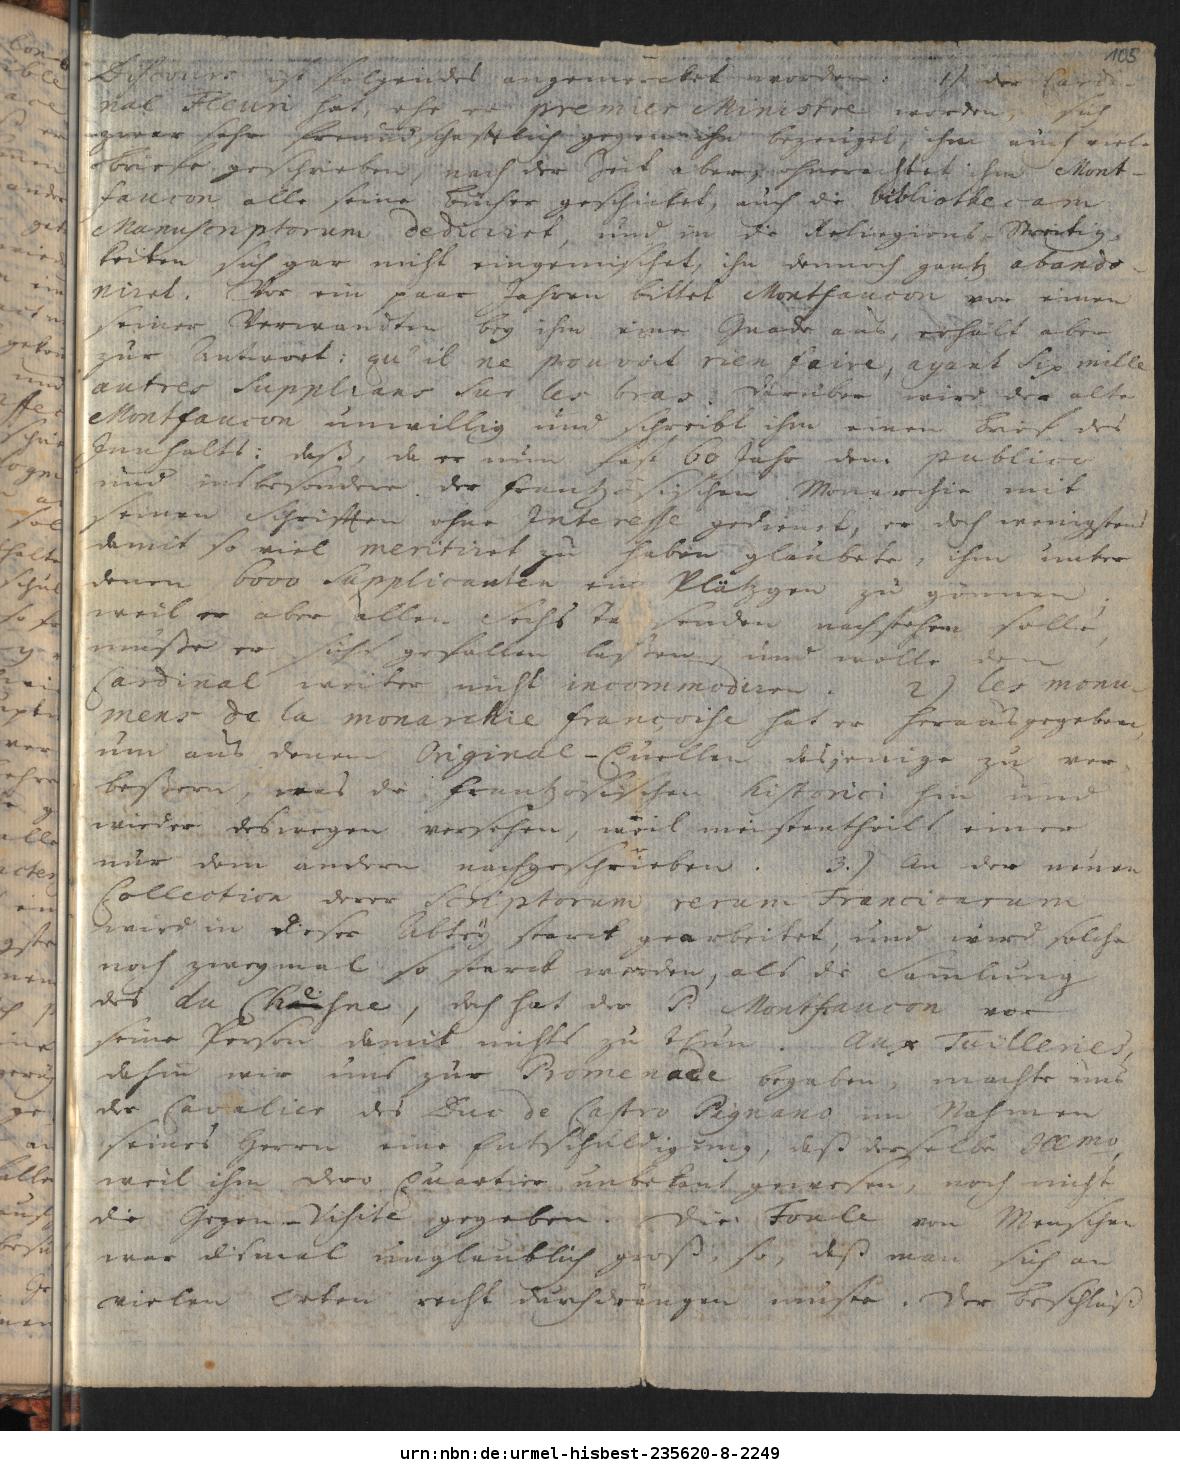 105
Discours ist folgendes angemercket worden: 1.) der Cardi-
nal Fleuri hat, ehe er premier Ministre worden, sich
zwar sehr freundschafftlich gegen ihn bezeuget, ihm auch viel
briefe geschrieben, nach der Zeit aber, ohnerachtet ihm Mont-
faucon alle seine Bücher geschicket, auch die bibliothecam
Manuscriptorum dediciret, und in die Religions-Streitig-
keiten sich gar nicht eingemischet, ihn dennoch gantz abando-
niret. Vor ein paar Jahren bittet Montfaucon vor einen
seiner Verwandten bey ihm eine Gnade aus, erhält aber
zur Antwort: qu'il ne pouvoit rien faire, ayant six mille
autres supplians sur les bras. Darüber wird der alte
Montfaucon unwillig und schreibt ihm einen Brief des
Innhalts: daß, da er nun fast 60 Jahr dem publico
und insbesondere der frantzösischen Monarchie mit
seinen Schrifften ohne Interesse gedienet, er doch wenigstens
damit so viel meritiret zu haben glaubete, ihm unter
denen 6000 Supplicanten ein Plätzgen zu gönnen;
weil er aber allen Sechs Tausenden nachstehen solle,
müsse er sichs gefallen lassen, und wolle den
Cardinal weiter nicht incommodiren. 2.) les monu-
mens de la monarchie françoise hat er herausgegeben,
um aus denen Original-Quellen dasjenige zu ver-
bessern, was die frantzösischen historici hin und
wieder deswegen versehen, weil meistentheils einer
nur dem andern nachgeschrieben. 3.) An der neuen
Collection derer Scriptorum rerum Francicarum
wird in dieser Abtey starck gearbeitet, und wird solche
noch zweymal so starck werden, als die Samlung
des du Chesne, doch hat der P. Montfaucon vor
seine Person damit nichts zu thun. Aux Tuilleries,
dahin wir uns zur Promenade begaben, machte uns
der Cavalier des Duc de Castro Pignano im Nahmen
seines Herrn eine Entschuldigung, daß derselbe Illmo,
weil ihm dero Quartier unbekant gewesen, noch nicht
die Gegen-Visite gegeben. Die Foule von Menschen
war dismal unglaublich groß, so, daß man sich an
vielen Orten recht durchdrängen muste. Der Beschluß
urn:nbn:de:urmel-hisbest-235620-8-2249